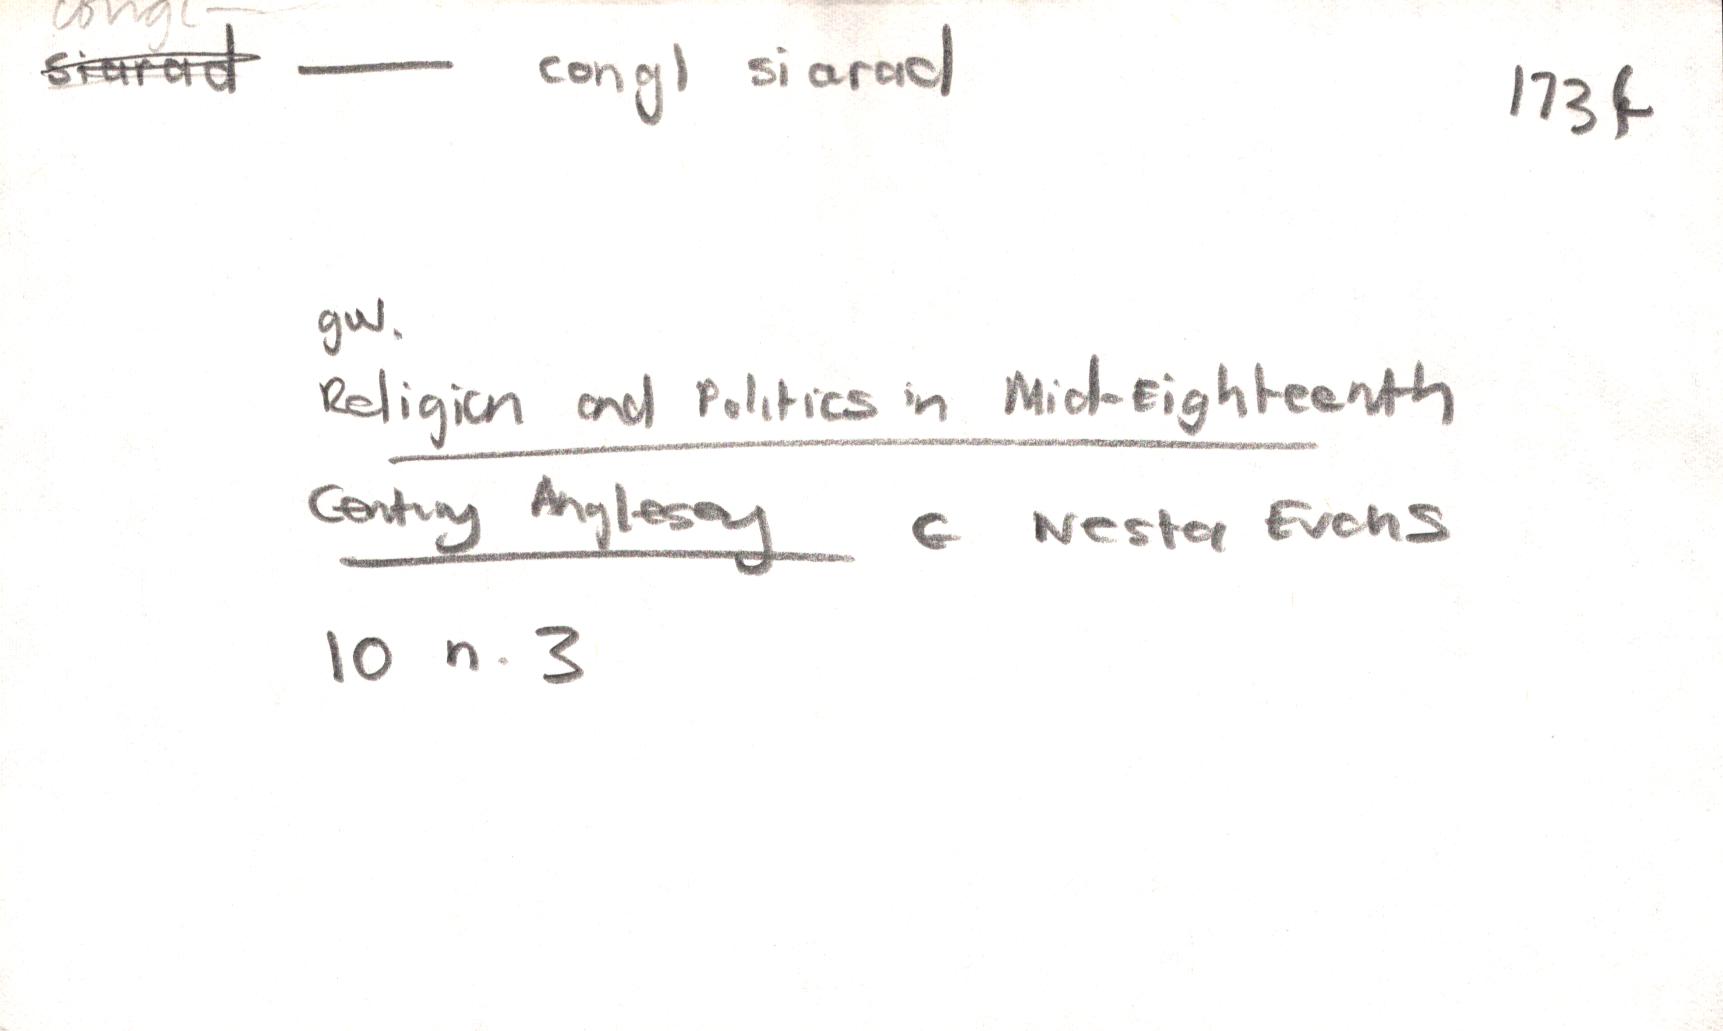 congl-
siarad — congl siarad 173f
gw.
Religion and Politics in Mid-Eighteenth
Century Anglesey G Nesta Evans
10 n. 3